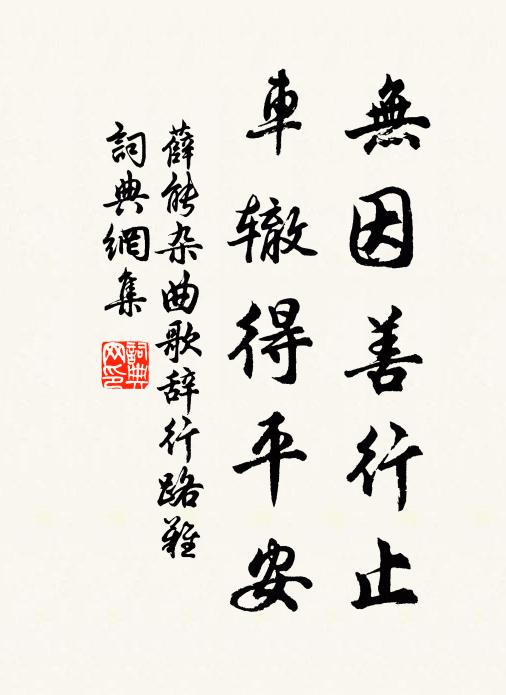 無因善行止
車辙得平安
薛能杂曲歌辞行路難
詞典網集
詞典
网印